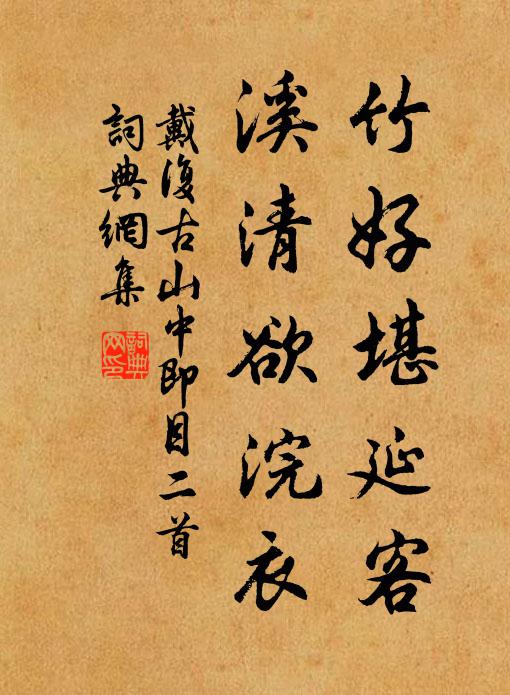 竹好堪延客
溪清欲浣衣
戴復古山中即目二首
詞典網集
詞典網印